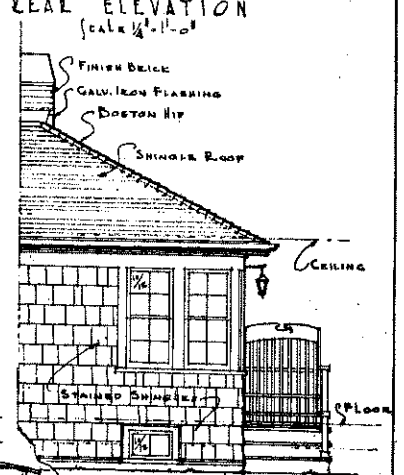 REAR ELEVATION
SCALE 1/4"=1'-0"
FINISH BRICK
GALV. IRON FLASHING
BOSTON HIP
SHINGLE ROOF
CEILING
STAINED SHINGLES
FLOOR